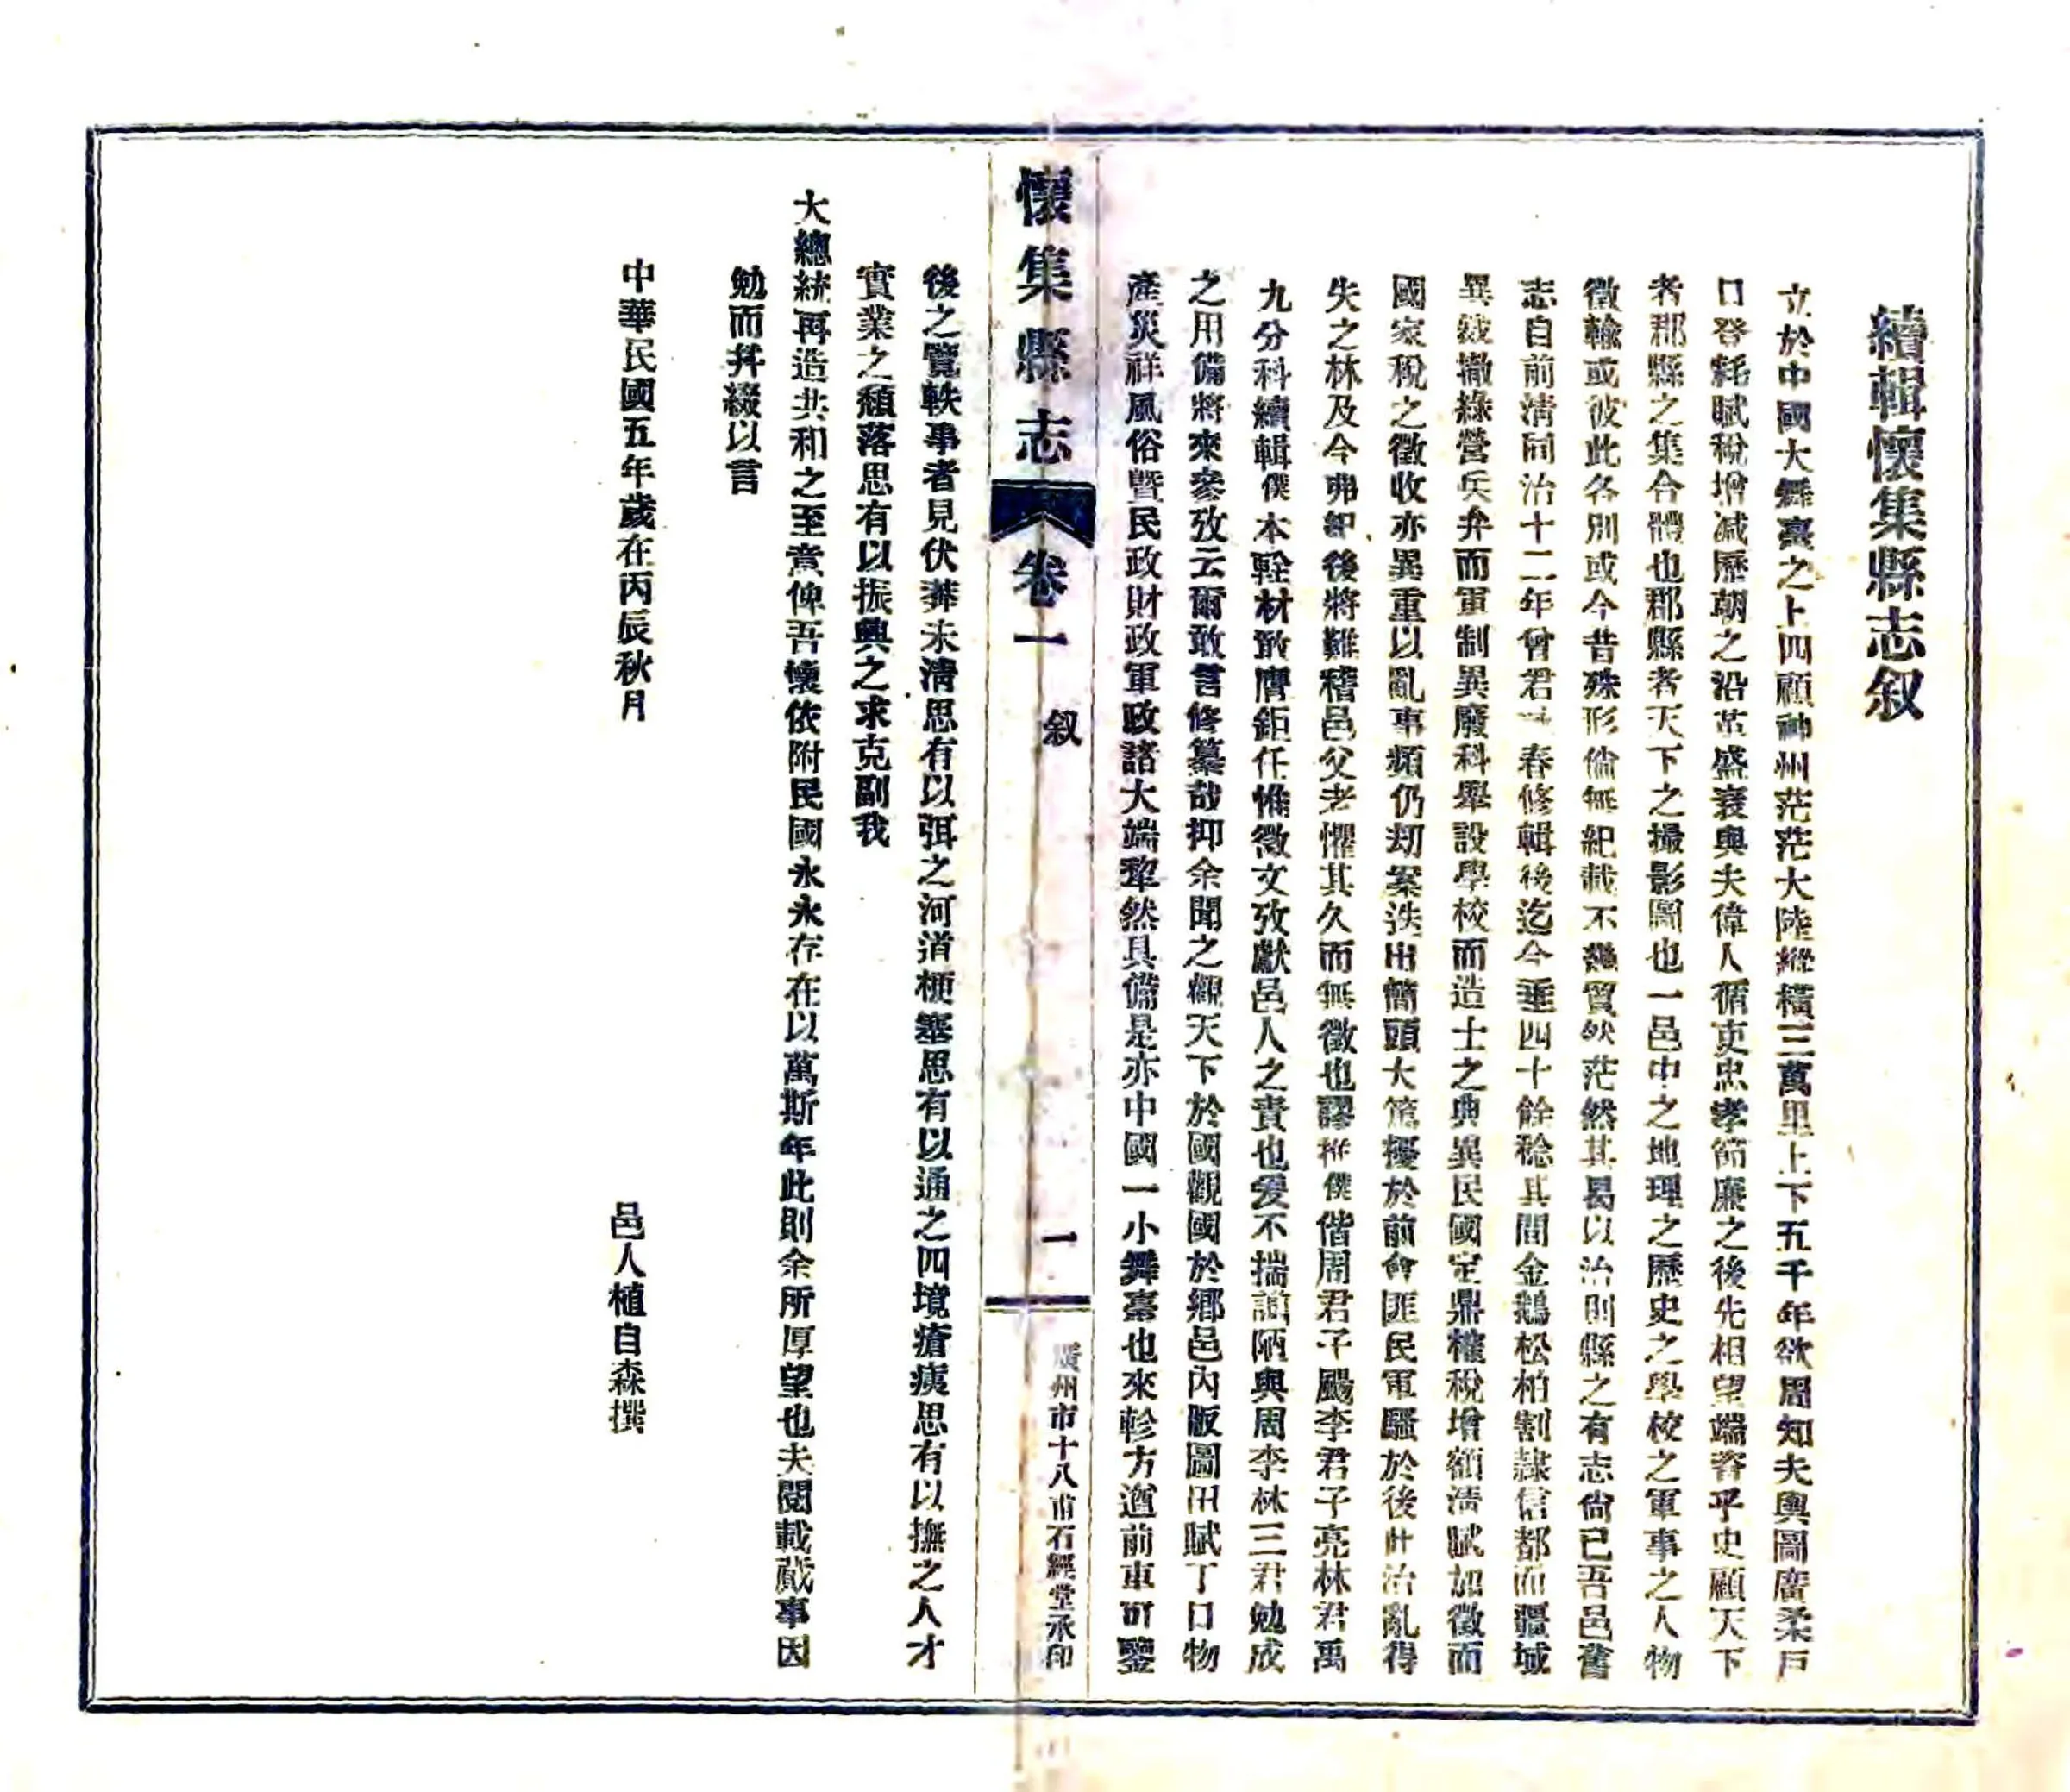 續輯懷集縣志叙
立於中國大舞臺之上四顧神州茫茫大陸縱橫三萬里上下五千年欲周知夫輿圖廣柔戶
口登耗賦稅增減歷朝之沿革盛衰與夫偉人循吏忠孝節廉之後先相望端容乎史顧天下
者郡縣之集合體也郡縣者天下之撮影圖也一邑中之地理之歷史之學校之軍事之人物
徵輸或彼此各別或今昔殊形倘無紀載不幾貿然茫然其曷以治則縣之有志尙已吾邑舊
志自前清同治十二年曾君 春修輯後迄今垂四十餘稔其間金鵝松柏割隸信都而疆域
異裁撤綠營兵弁而軍制異廢科舉設學校而造士之典異民國定鼎權稅增額淸賦加徵而
國家稅之徵收亦異重以亂事頻仍刼案迭出簡頭大篢擾於前會匪民軍騷於後此治亂得
失之林及今弗紀後將難稽邑父老懼其久而無徵也謬推僕偕周君子颺李君子亮林君禹
九分科續輯僕本輇材敢膺鉅任惟徵文攷獻邑人之責也爰不揣譾陋與周李林三君勉成
之用備將來參攷云爾敢言修纂哉抑余聞之觀天下於國觀國於鄉邑內版圖田賦丁口物
產災祥風俗曁民政財政軍政諸大端犂然具備是亦中國一小舞臺也來軫方遒前車可鑒
懷集縣志
卷一
叙
一
廣州市十八甫石經堂承印
後之覽軼事者見伏莽未清思有以弭之河道梗塞思有以通之四境瘡痍思有以撫之人才
實業之頹落思有以振興之求克副我
大總統再造共和之至意俾吾懷依附民國永永存在以萬斯年此則余所厚望也夫閱載蕆事因
勉而弁綴以言
中華民國五年歲在丙辰秋月
邑人植自森撰